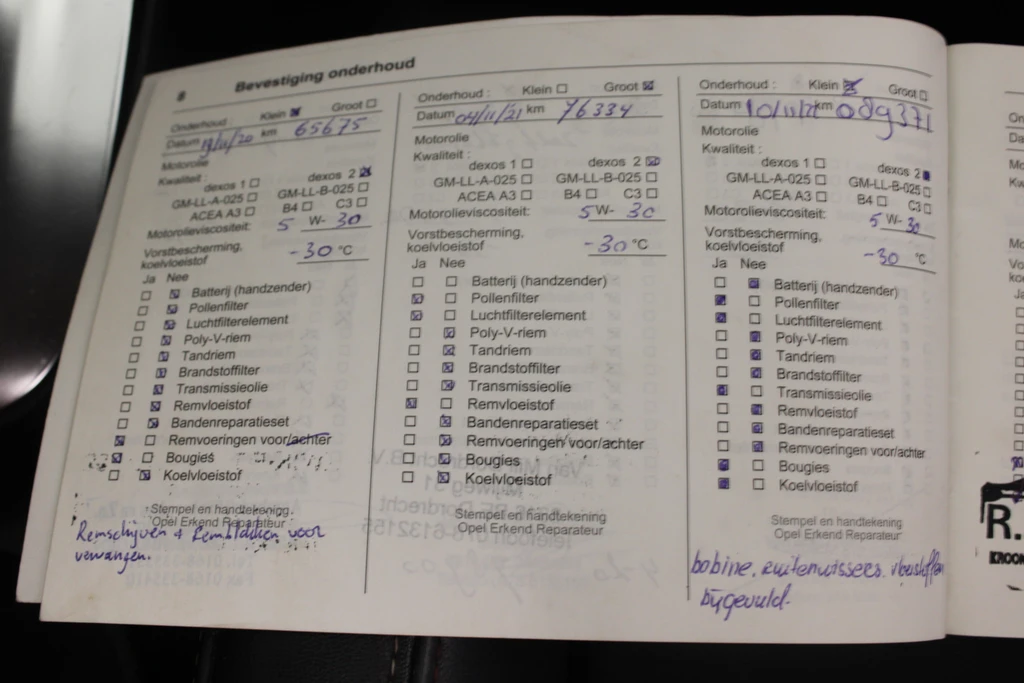 8 Bevestiging onderhoud
Onderhoud : Klein Groot
Datum km 65675
Motorolie
Kwaliteit :
dexos 1 dexos 2
GM-LL-A-025 GM-LL-B-025
ACEA A3 B4 C3
Motorolieviscositeit: 5 W- 30
Vorstbescherming,
koelvloeistof -30 °C
Ja Nee
Batterij (handzender)
Pollenfilter
Luchtfilterelement
Poly-V-riem
Tandriem
Brandstoffilter
Transmissieolie
Remvloeistof
Bandenreparatieset
Remvoeringen voor/achter
Bougies
Koelvloeistof
Stempel en handtekening
Opel Erkend Reparateur
Remschijven + Remblokken voor
vervangen.
Onderhoud : Klein Groot
Datum 04/11/21 km 76334
Motorolie
Kwaliteit :
dexos 1 dexos 2
GM-LL-A-025 GM-LL-B-025
ACEA A3 B4 C3
Motorolieviscositeit: 5 W- 30
Vorstbescherming,
koelvloeistof -30 °C
Ja Nee
Batterij (handzender)
Pollenfilter
Luchtfilterelement
Poly-V-riem
Tandriem
Brandstoffilter
Transmissieolie
Remvloeistof
Bandenreparatieset
Remvoeringen voor/achter
Bougies
Koelvloeistof
Stempel en handtekening
Opel Erkend Reparateur
Onderhoud : Klein Groot
Datum 10/11/22 km 089371
Motorolie
Kwaliteit :
dexos 1 dexos 2
GM-LL-A-025 GM-LL-B-025
ACEA A3 B4 C3
Motorolieviscositeit: 5 W- 30
Vorstbescherming,
koelvloeistof -30 °C
Ja Nee
Batterij (handzender)
Pollenfilter
Luchtfilterelement
Poly-V-riem
Tandriem
Brandstoffilter
Transmissieolie
Remvloeistof
Bandenreparatieset
Remvoeringen voor/achter
Bougies
Koelvloeistof
Stempel en handtekening
Opel Erkend Reparateur
bobine, ruitenwissers. vloeistoffen
bijgevuld.
R.
KROON